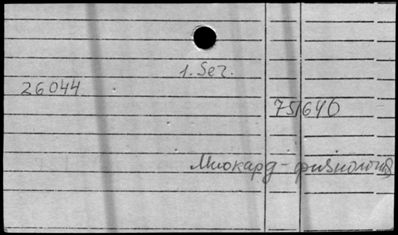 1. Ser.
26044
751640
Миокард - физиология